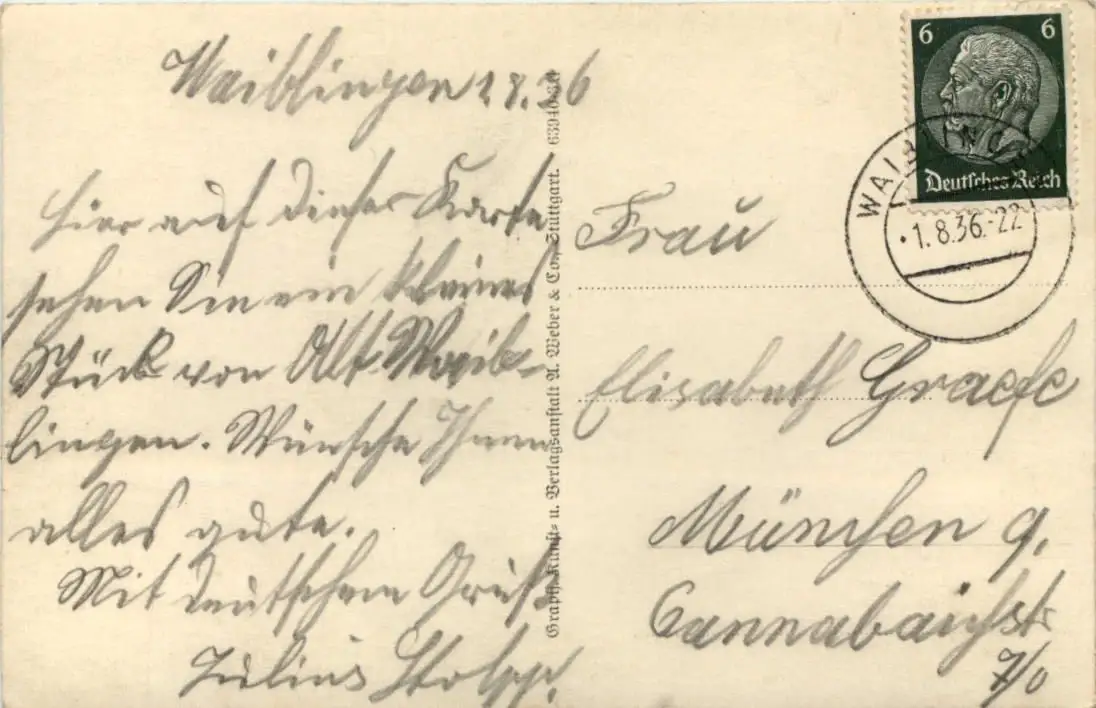 Waiblingen 1.8.36
Hier auf dieser Karte
sehen Sie ein kleines
Stück von Alt Waib-
lingen. Wünsche Ihnen
alles gute.
Mit deutschem Gruß
Julius
Graph. Kunst- u. Verlagsanstalt A. Weber & Co., Stuttgart.
6 6
Deutsches Reich
WAIBLINGEN
1.8.36.-22
Frau
Elisabeth Graefe
München 9.
7/0